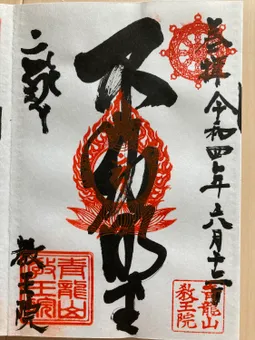 奉拝 令和四年六月
不動明王
教王院
青龍山
教王院
青龍山
教王院